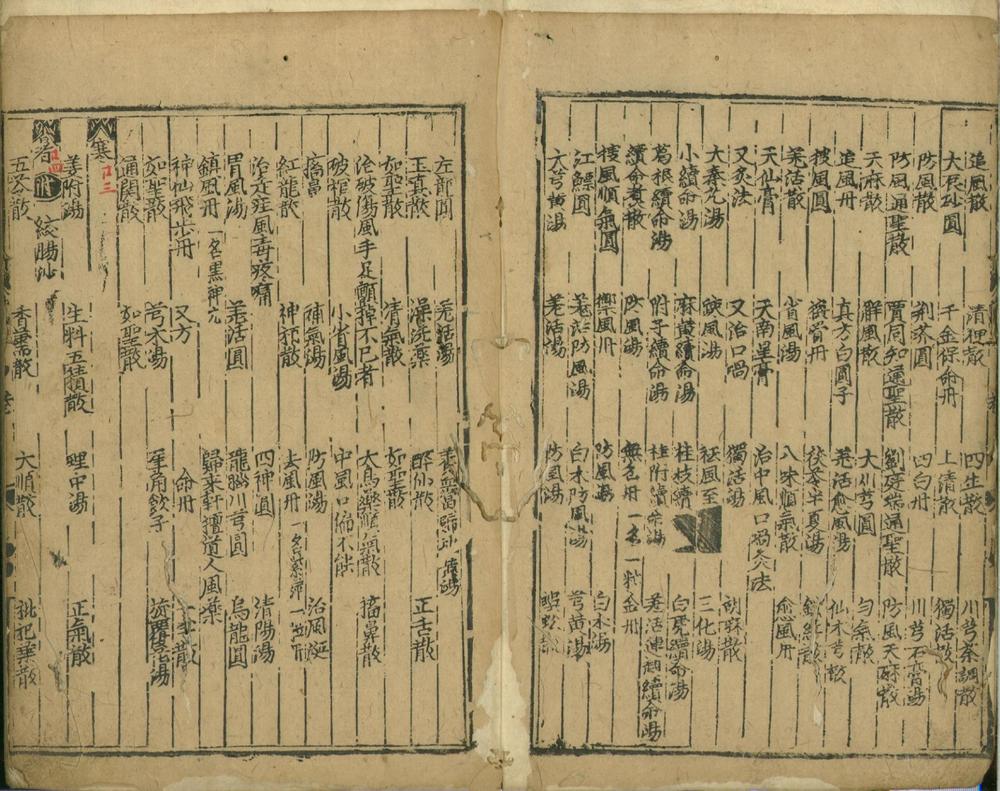 追風散 清狸散 四生散 川芎茶調散
大辰砂圓 千金保命丹 上清散 獨活散
防風散 荊芥圓 四白丹 川芎石膏湯
防風通聖散 賈同知通聖散 劉庭瑞通聖散 防風天麻散
天麻散 解風散 大川芎圓 勻氣散
追風丹 真方白圓子 羌活愈風湯 仙术芎散
搜風圓 茯苓半夏湯
羌活散 省風湯 八味順氣散 愈風丹
天仙膏 天南星膏 治中風口喎灸法
又灸法 又治口喎 獨活湯 胡麻散
大秦艽湯 三化湯
小續命湯 麻黃續命湯 桂枝續 白虎續命湯
葛根續命湯 附子續命湯 桂附續命湯 羌活連翹續命湯
續命煮散 防風湯 無名丹 一名一粒金丹
搜風順氣圓 禦風丹 防風湯 白术湯
江鰾圓 羌活防風湯 白术防風湯 芎黃湯
大芎黃湯 羌活湯 防風湯
左龍圓 羌活湯 養血當歸地黃湯
玉真散 澡洗藥 醉仙散 正舌散
如聖散 清氣散 如聖散
治破傷風手足顫掉不已者 大烏藥順氣散 搐鼻散
破棺散 小省風湯 中風口偏不能
搐鼻 補氣湯 防風湯 治風涎
紅龍散 神祐散 去風丹 一名紫萍一粒丹
治走疰風毒疼痛 四神圓 清陽湯
胃風湯 羌活圓 龍腦川芎圓 烏龍圓
鎮風丹 一名黑神丸 歸來軒擅道人風藥
神仙飛步丹 又方 命丹
如聖散 芎术湯 犀角飲子 旋覆花湯
通關散 如聖散
寒 口三
姜附湯 生料五積散 理中湯 正氣散
暑 口四 附 絞腸沙
五苓散 香薷散 大順散 枇杷葉散